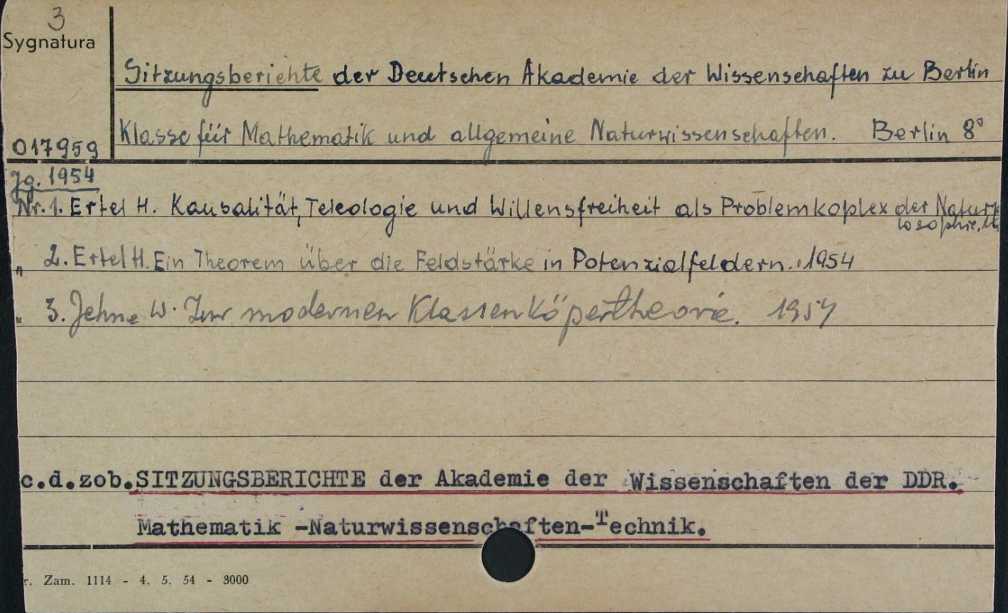 3
Sygnatura
Sitzungsberichte der Deutschen Akademie der Wissenschaften zu Berlin
Klasse für Mathematik und allgemeine Naturwissenschaften. Berlin 8°
017959
Jg. 1954
Nr. 1. Ertel H. Kausalität, Teleologie und Willensfreiheit als Problemkoplex der Natur
losophie.
„ 2. Ertel H. Ein Theorem über die Feldstärke in Potenzialfeldern. 1954
„ 3. Jehne W. Zur modernen Klassenköpertheorie. 1954
c.d.zob. SITZUNGSBERICHTE der Akademie der Wissenschaften der DDR.
Mathematik -Naturwissenschaften-Technik.
r. Zam. 1114 - 4. 5. 54 - 3000